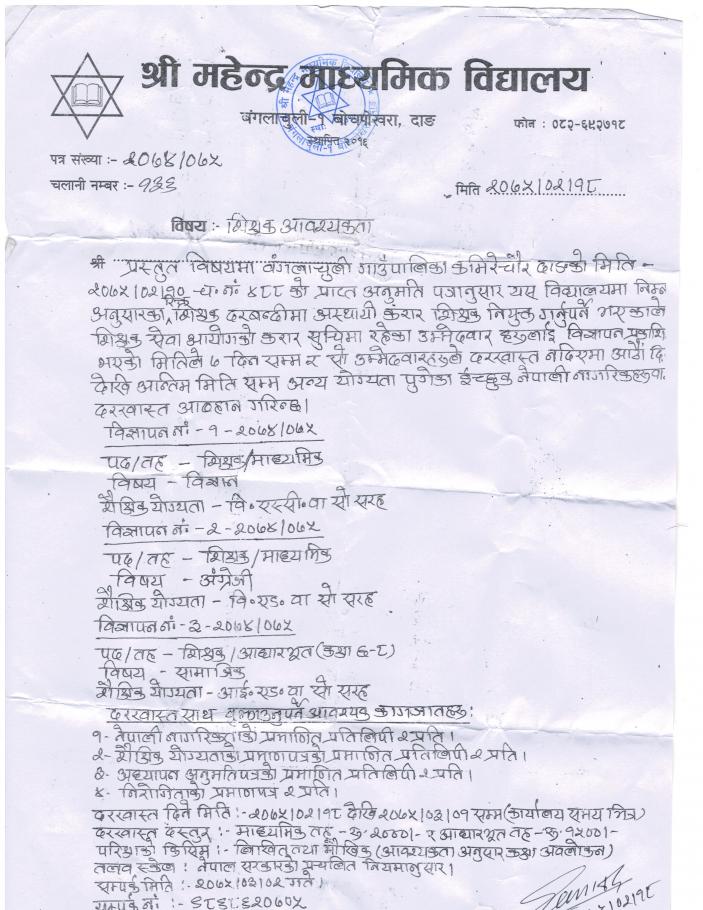 श्री महेन्द्र माध्यमिक विद्यालय
बंगलाचुली-१ बोचपोखरा, दाङ
फोन : ०८२-६९२७१८
स्थापित २०१६
पत्र संख्या :- २०७४/०७५
चलानी नम्बर :- १३६
मिति २०७५/०२/१८
विषय:- शिक्षक आवश्यकता
श्री प्रस्तुत विषयमा बंगलाचुली गाउँपालिका कमिरेचौर दाङको मिति -
२०७५/०२/१० च.नं. ४८८ को प्राप्त अनुमति पत्रानुसार यस विद्यालयमा निम्न
अनुसारका रिक्त शिक्षक दरबन्दीमा अस्थायी करार शिक्षक नियुक्त गर्नुपर्ने भएकाले
शिक्षक सेवा आयोगको करार सुचिमा रहेका उम्मेदवार हरुलाई विज्ञापन
भएको मितिले ७ दिन सम्म र सो उम्मेदवारहरुले दरखास्त नदिएमा आठौं
देखि अन्तिम मिति सम्म अन्य योग्यता पुगेका ईच्छुक नेपाली
दरखास्त आव्हान गरिन्छ।
विज्ञापन नं. - १ - २०७४/०७५
पद/तह - शिक्षक/माध्यमिक
विषय - विज्ञान
शैक्षिक योग्यता - वि॰एस्सी॰ वा सो सरह
विज्ञापन नं. - २ - २०७४/०७५
पद/तह - शिक्षक/माध्यमिक
विषय - अंग्रेजी
शैक्षिक योग्यता - वि॰एड॰ वा सो सरह
विज्ञापन नं - ३ - २०७४/०७५
पद/तह - शिक्षक/आधारभूत (कक्षा ६-८)
विषय - सामाजिक
शैक्षिक योग्यता - आई॰एड॰ वा सो सरह
दरखास्त साथ बुझाउनुपर्ने आवश्यक कागजातहरु:
१- नेपाली नागरिकताको प्रमाणित प्रतिलिपी २ प्रति।
२- शैक्षिक योग्यताको प्रमाणपत्रको प्रमाणित प्रतिलिपी २ प्रति।
३- अध्यापन अनुमतिपत्रको प्रमाणित प्रतिलिपी २ प्रति।
४- निरोगिताको प्रमाणपत्र २ प्रति।
दरखास्त दिने मिति :- २०७५/०२/१८ देखि २०७५/०३/०१ सम्म (कार्यालय समय भित्र)
दरखास्त दस्तुर :- माध्यमिक तह - रु. २०००।- र आधारभूत तह - रु. १५००।-
परिक्षाको किसिम :- लिखित तथा मौखिक (आवश्यकता अनुसार कक्षा अवलोकन)
तलव स्केल : नेपाल सरकारको प्रचलित नियमानुसार।
सम्पर्क मिति :- २०७५/०३/०२ गते।
सम्पर्क नं :- ९८६८६२०७०५